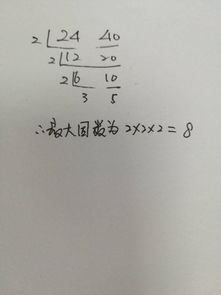 2 24 40
2 12 20
2 6 10
3 5
∴最大因数为 2×2×2=8